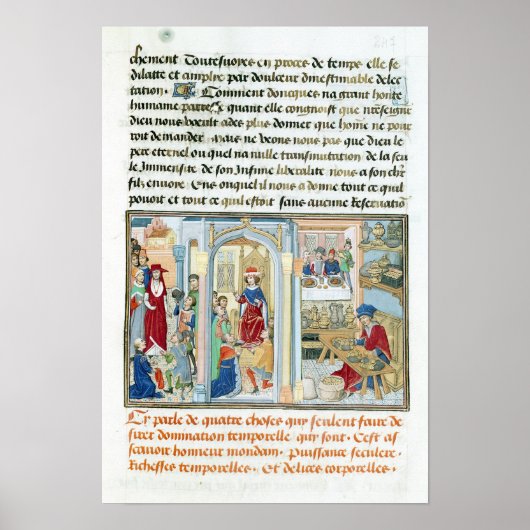 247
chement Toutesuoies en proces de temps elle se
dilatte et amplie par doulceur dinestimable delec
tation. Comment doncques na grant honte
humaine quant elle congnoist que
dieu nous voeult adez plus donner que homme ne pour
roit demander. Maiz ne veons nous pas que dieu le
pere eternel ou quel na nulle transmutation de la seu
le Immensite de son Infinie liberalite nous a son chier
filz enuoye. Ens onquel il nous a donne tout ce quil
pouoit et tout ce quil estoit sans aucune Reseruation
Cy parle de quatre choses quy seulent faire de
sirer domination temporelle quy sont. Cest as
scauoir honneur mondain. Puissance seculere.
Richesses temporelles. Et delices corporelles.